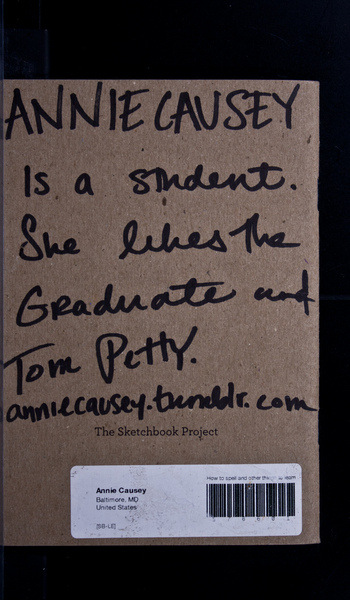 ANNIE CAUSEY
Is a student.
She likes The
Graduate and
Tom Petty.
anniecausey.tumblr.com
The Sketchbook Project
How to spell and other
Annie Causey
Baltimore, MD
United States
[BB-LE]